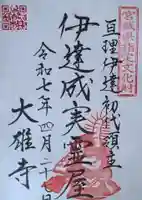 宮城県指定文化財
亘理伊達初代領主
伊達成実霊屋
令和七年四月二十
大雄寺